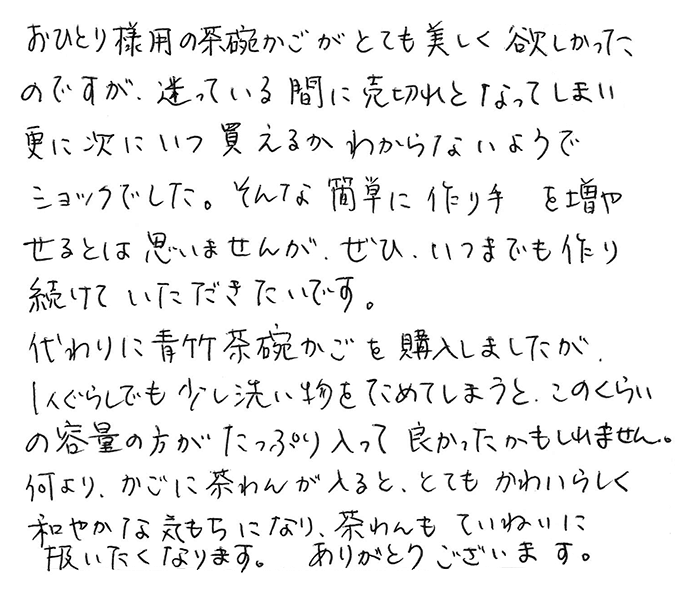 おひとり様用の茶碗かごがとても美しく欲しかった
のですが、迷っている間に売切れとなってしまい
更に次にいつ買えるかわからないようで
ショックでした。そんな簡単に作り手を増や
せるとは思いませんが、ぜひ、いつまでも作り
続けていただきたいです。
代わりに青竹茶碗かごを購入しましたが、
1人ぐらしでも少し洗い物をためてしまうと、このくらい
の容量の方がたっぷり入って良かったかもしれません。
何より、かごに茶わんが入ると、とてもかわいらしく
和やかな気もちになり、茶わんもていねいに
扱いたくなります。ありがとうございます。